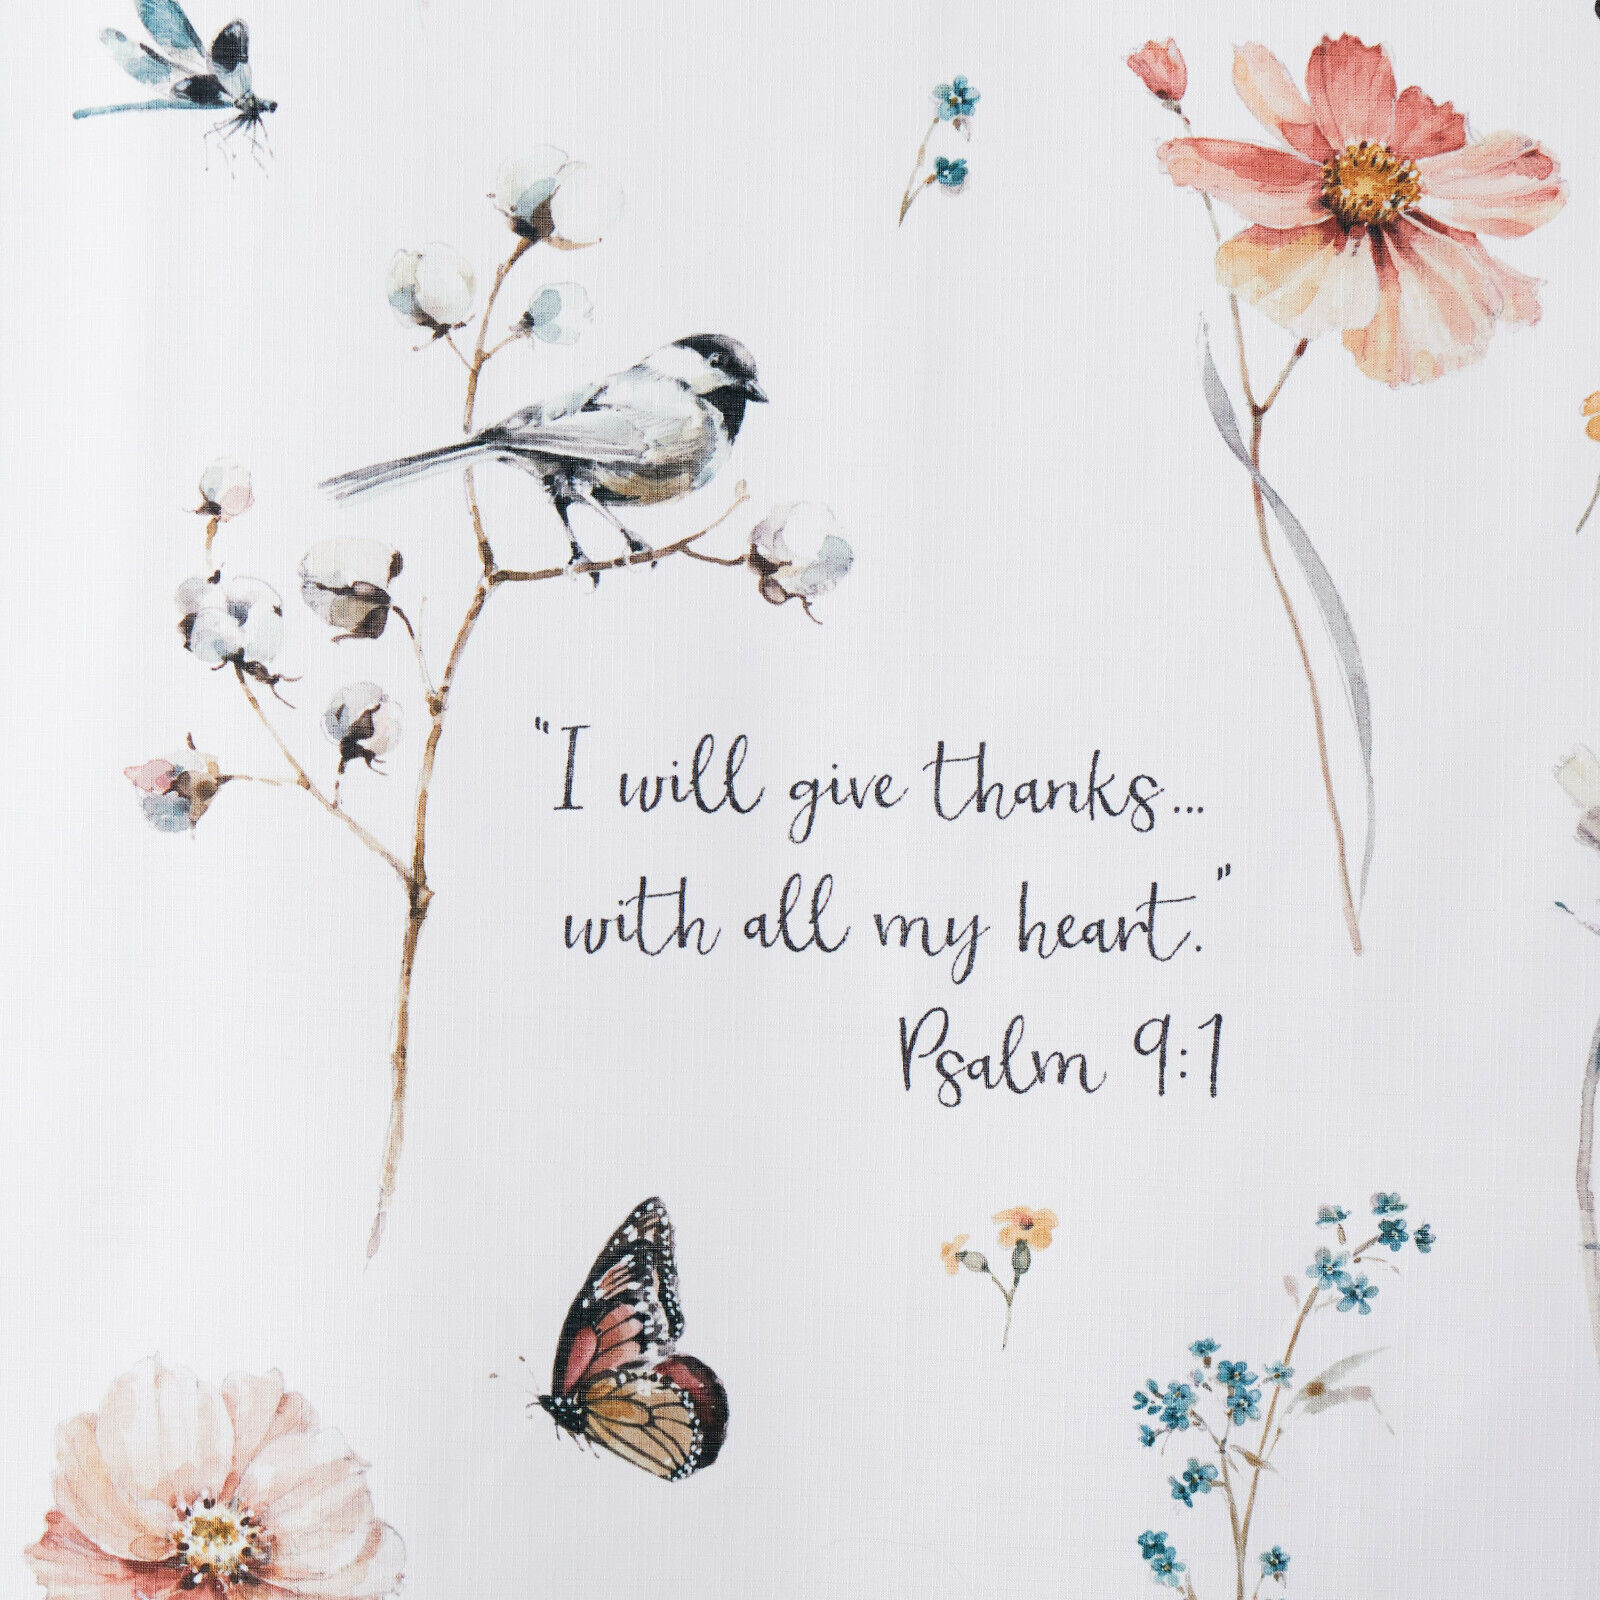 "I will give thanks...
with all my heart."
Psalm 9:1